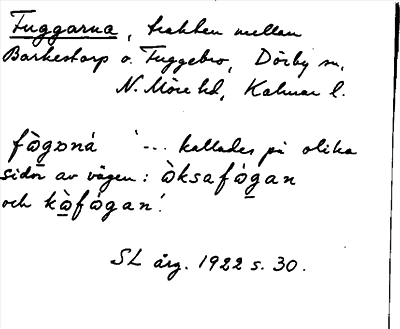 Fuggarna, trakten mellan
Barkestorp o. Fuggebro, Dörby sn,
N. Möre hd, Kalmar l.
fὼgɒná '--- kallades på olika
sidor av vägen: ὼksafώgan
och kὼfώgan'.
SL årg. 1922 s. 30.